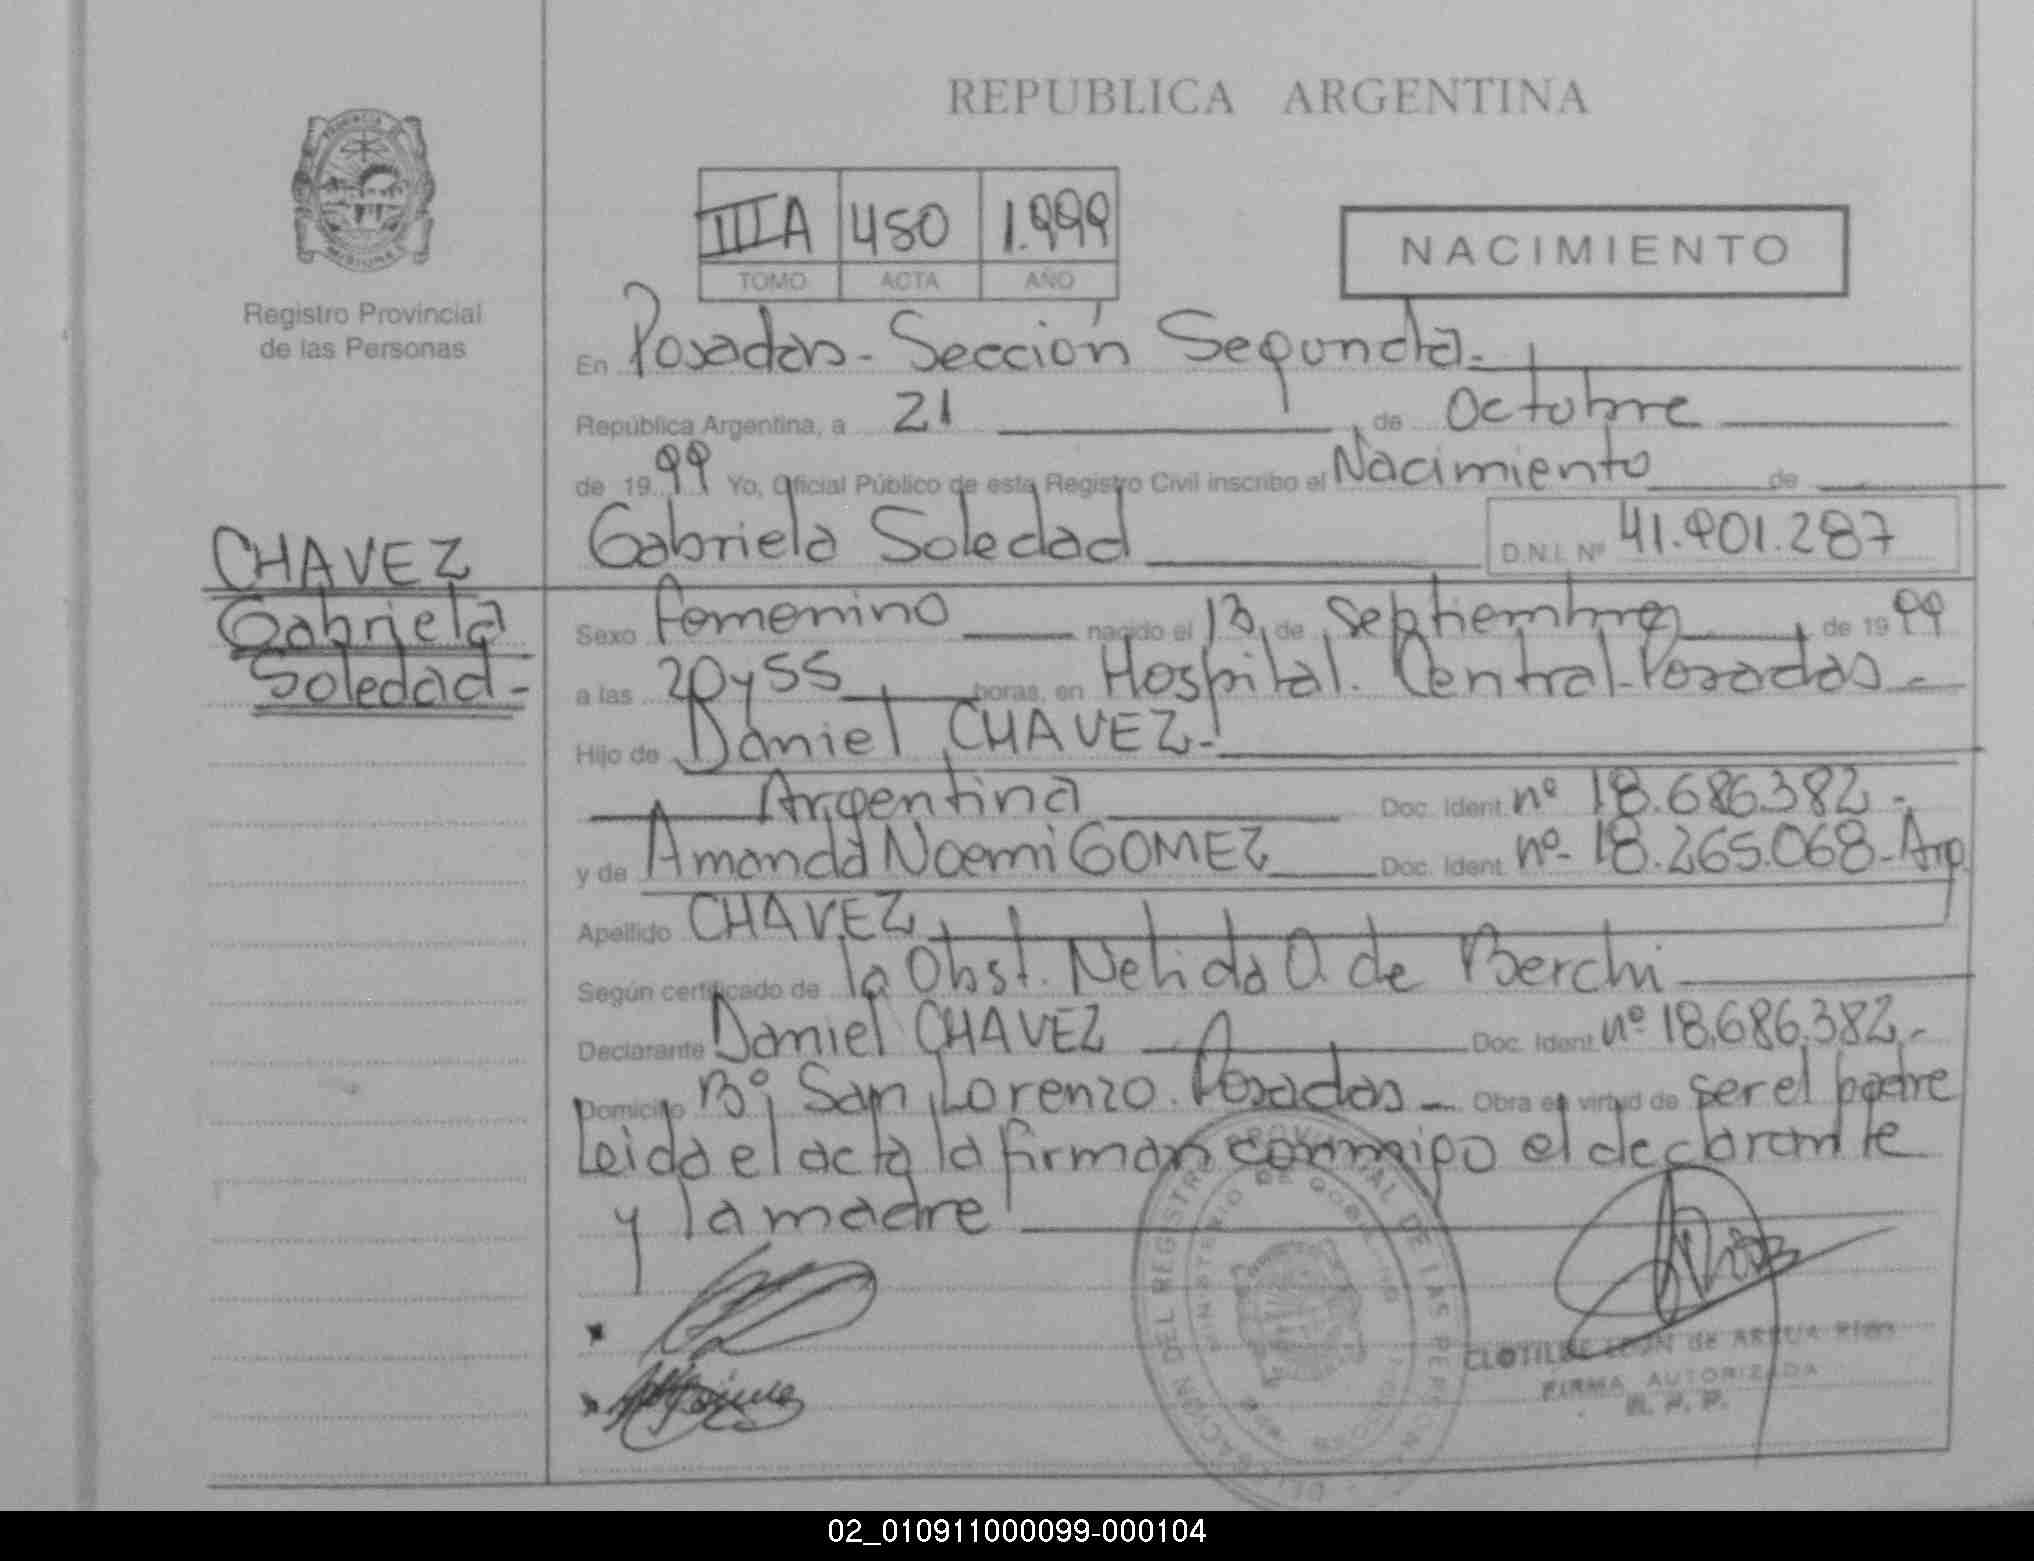 REPUBLICA ARGENTINA
PROVINCIA DE
MISIONES
Registro Provincial
de las Personas
IIIA 450 1.999
TOMO ACTA AÑO
NACIMIENTO
En Posadas - Sección Segunda.-
República Argentina, a 21 de Octubre
de 1999 Yo, Oficial Público de esta Registro Civil inscribo el Nacimiento de
Gabriela Soledad D.N.I. Nº 41.901.287
CHAVEZ
Gabriela
Soledad-
Sexo femenino nacido el 13 de septiembre de 1999
a las 20 y 55 horas, en Hospital. Central-Posadas-
Hijo de Daniel CHAVEZ-
Argentina Doc. Ident. nº 18.686.382-
y de Amanda Noemi GOMEZ Doc. Ident. nº- 18.265.068-Arg.
Apellido CHAVEZ
Según certificado de la Obst. Nelida O. de Berchi
Declarante Daniel CHAVEZ Doc. Ident. nº 18.686.382.-
Domicilio Bº San Lorenzo. Posadas - Obra en virtud de ser el padre
Leida el acta la firman conmigo el declarante
y la madre
DELEGACION DEL REGISTRO PROVINCIAL DE LAS PERSONAS
MINISTERIO DE GOBIERNO
MISIONES
CLOTILDE LEON de
FIRMA AUTORIZADA
R. P. P.
02_010911000099-000104